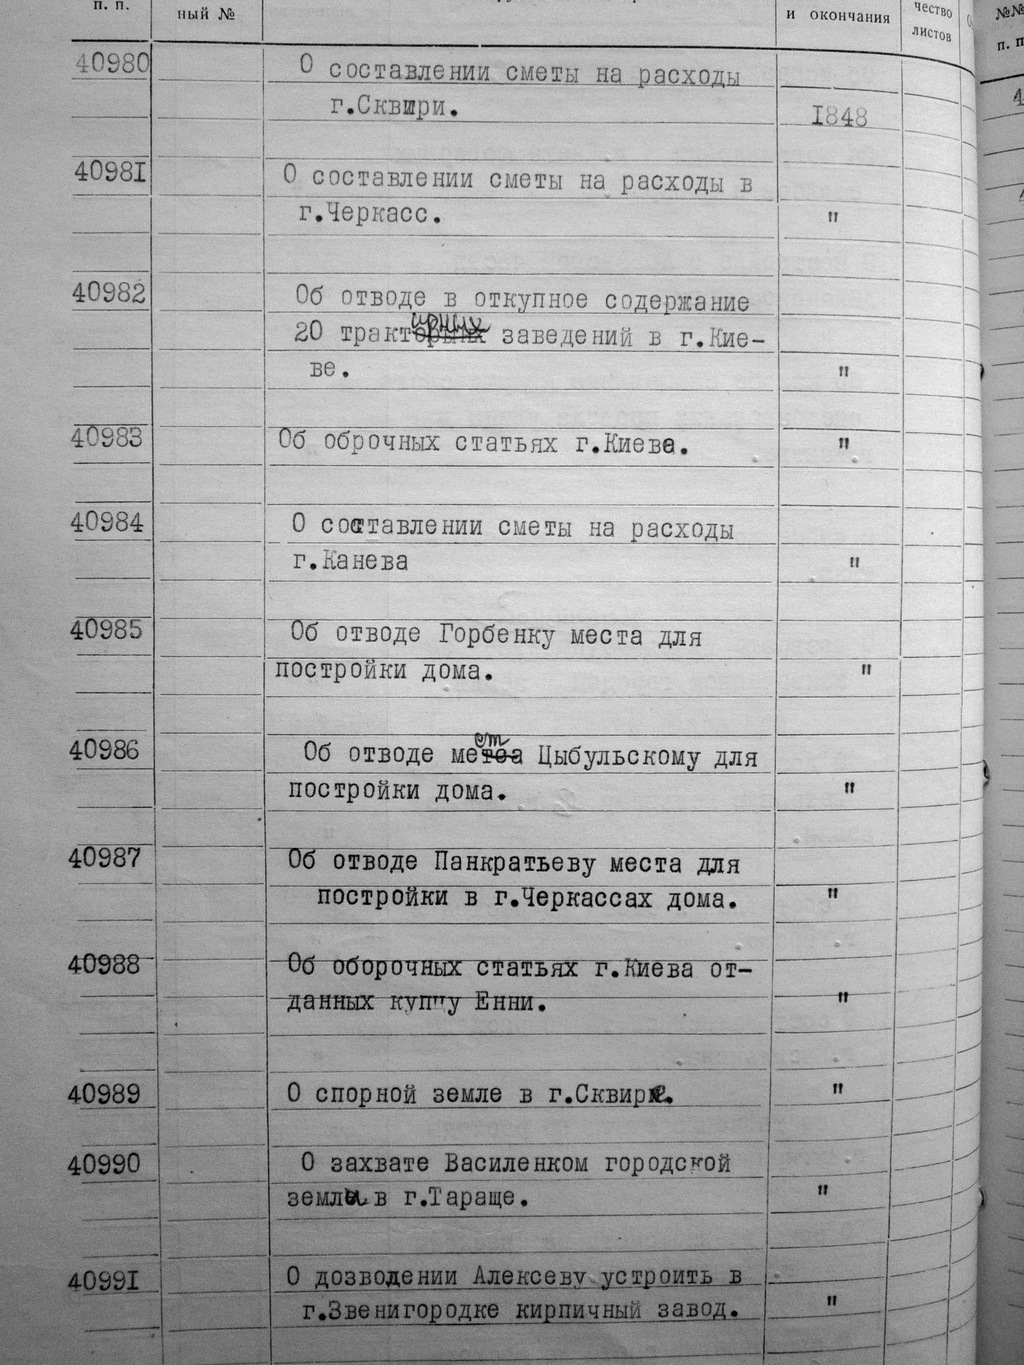 п. п.
ный №
и окончания
чество
листов
№№
п. п
40980
О составлении сметы на расходы
г.Сквири.
1848
40981
О составлении сметы на расходы в
г.Черкасс.
"
40982
Об отводе в откупное содержание
20 трактирных заведений в г.Кие-
ве.
"
40983
Об оброчных статьях г.Киева.
"
40984
О составлении сметы на расходы
г.Канева
"
40985
Об отводе Горбенку места для
постройки дома.
"
40986
Об отводе мест Цыбульскому для
постройки дома.
"
40987
Об отводе Панкратьеву места для
постройки в г.Черкассах дома.
"
40988
Об оборочных статьях г.Киева от-
данных купцу Енни.
"
40989
О спорной земле в г.Сквире.
"
40990
О захвате Василенком городской
земли в г.Тараще.
"
40991
О дозволении Алексеву устроить в
г.Звенигородке кирпичный завод.
"